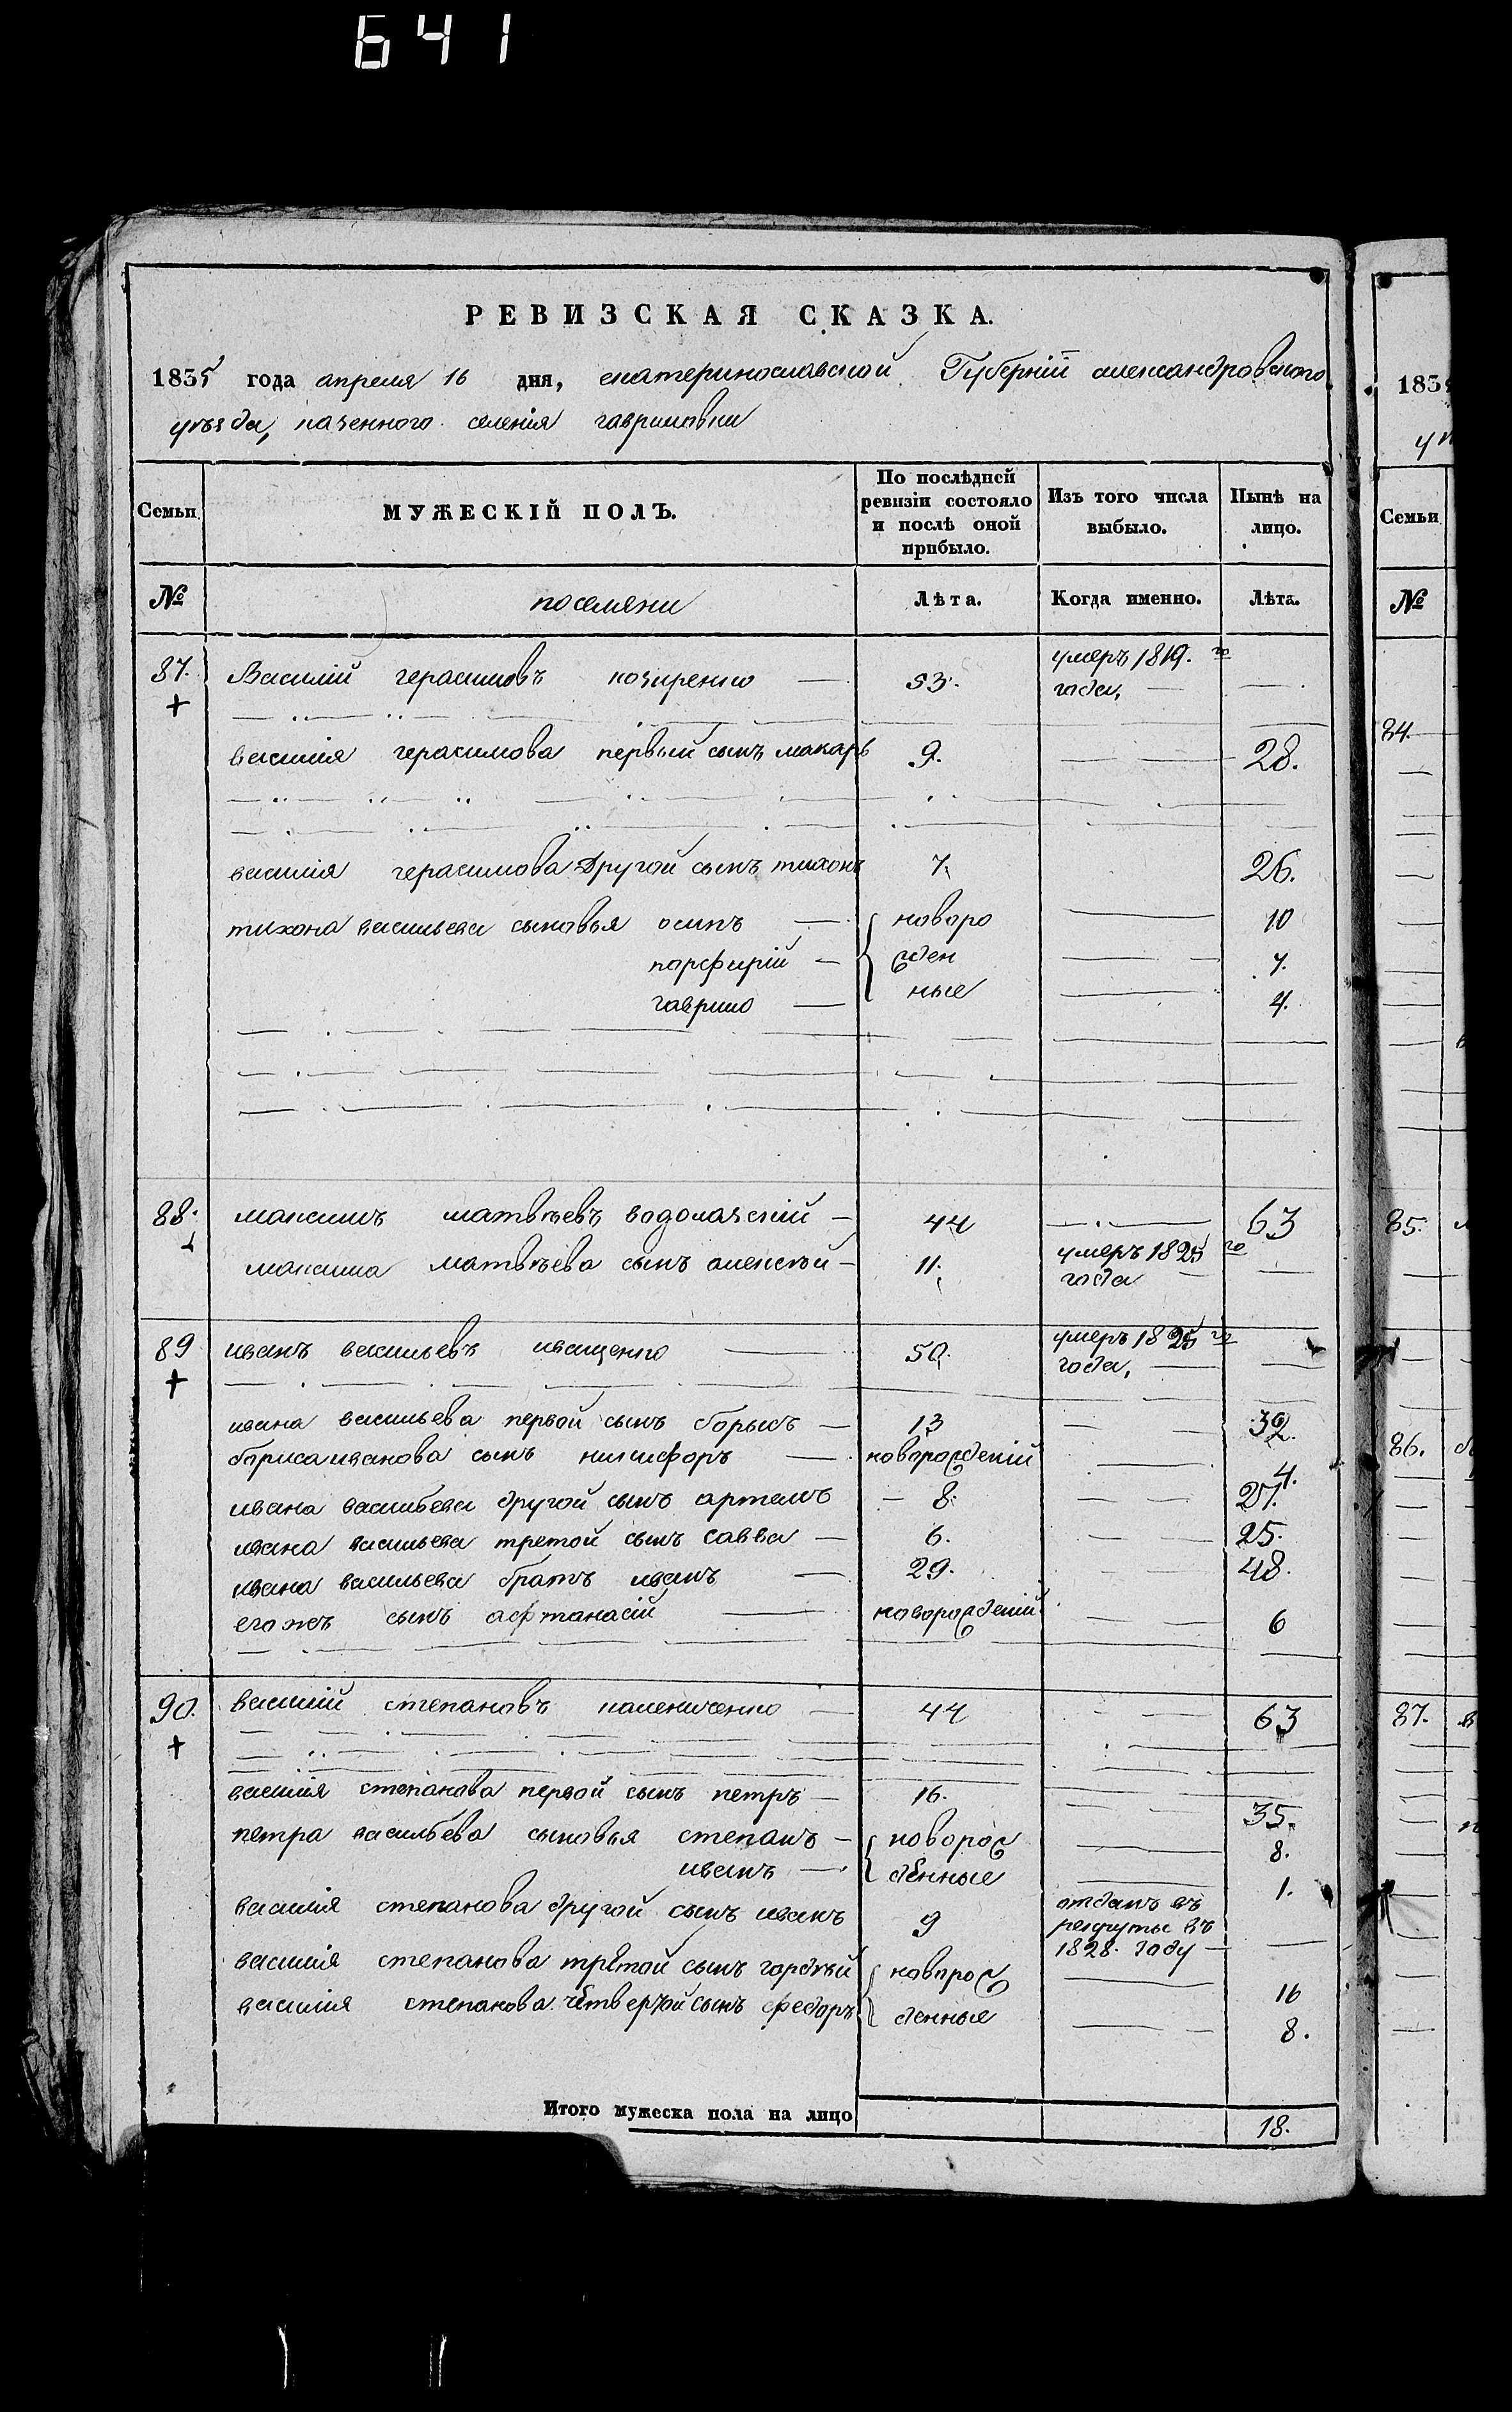 641
РЕВИЗСКАЯ СКАЗКА.
1835 года апреля 16 дня, екатеринославской Губерніи александровского
уѣзда, казенного селенія гавриловки
Семьи. МУЖЕСКІЙ ПОЛЪ. По послѣдней ревизіи состояло и послѣ оной прибыло. Изъ того числа выбыло. Нынѣ на лицо.
№ поселяни Лѣта. Когда именно. Лѣта.
87. Василій герасимовъ козиренко — 53. умеръ 1819. го года, — — .
василія герасимова первый сынъ макаръ 9. — — 28.
василія герасимова Другой сынъ тихонъ 7. 26.
тихона васильева сыновья осипъ — новоро — 10
порфирій — жден — 7.
гаврило — ные — 4.
88. максимъ матвѣевъ водолазскій — 44 — . — 63
максима матвѣева сынъ алексѣй — 11. умеръ 1825 го года — —
89 иванъ васильевъ иващенко — 50. умеръ 1825 го года, — —
ивана васильева первой сынъ борысъ — 13 — — 32.
бориса иванова сынъ никифоръ — новорожденій — 4.
ивана васильева другой сынъ артемъ — 8. — — 27.
ивана васильева третой сынъ савва — 6. — — 25.
ивана васильева братъ иванъ — 29. — — 48.
его жъ сынъ афтанасій — новорожденій — — 6
90. василій степановъ — 44 — — 63
василія степанова первой сынъ петръ — 16. — — 35.
петра васильева сыновья степанъ — новорож — 8.
иванъ — денные — 1.
василія степанова другой сынъ иванъ 9 отданъ въ рекруты въ 1828. году — —
василія степанова третой сынъ гордѣй новорож — 16
василія степанова четвертой сынъ федоръ денные — — 8.
Итого мужеска пола на лицо 18.
183
Семьи
№
84.
85.
86.
87.